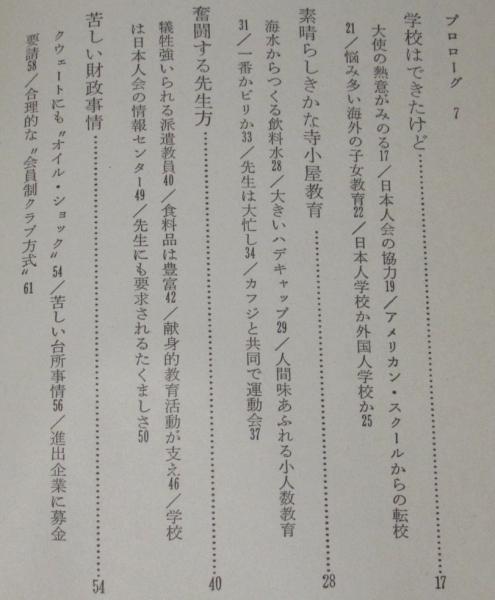 プロローグ 7
学校はできたけど……………………17
大使の熱意がみのる17／日本人会の協力19／アメリカン・スクールからの転校
21／悩み多い海外の子女教育22／日本人学校か外国人学校か25
素晴らしきかな寺小屋教育……………………28
海水からつくる飲料水28／大きいハデキャップ29／人間味あふれる小人数教育
31／一番かビリか33／先生は大忙し34／カフジと共同で運動会37
奮闘する先生方……………………40
犠牲強いられる派遣教員40／食料品は豊富42／献身的教育活動が支え46／学校
は日本人会の情報センター49／先生にも要求されるたくましさ50
苦しい財政事情……………………54
クウェートにも〝オイル・ショック〟54／苦しい台所事情56／進出企業に募金
要請58／合理的な〝会員制クラブ方式〟61